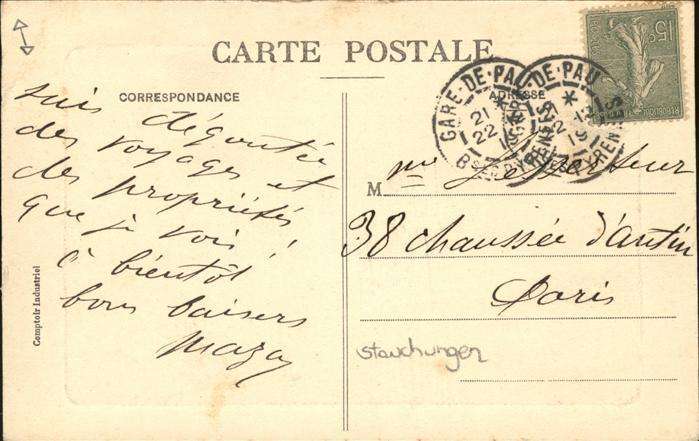 CARTE POSTALE
CORRESPONDANCE
suis dégoutée
des voyages et
des propriétés
que je vois !
à bientôt
bons baisers
Comptoir Industriel
ADRESSE
15c
GARE-DE-PAU
21
22
Bses PYRENEES
GARE-DE-PAU
M me
38 chaussée d'antin
Paris
stauchungen